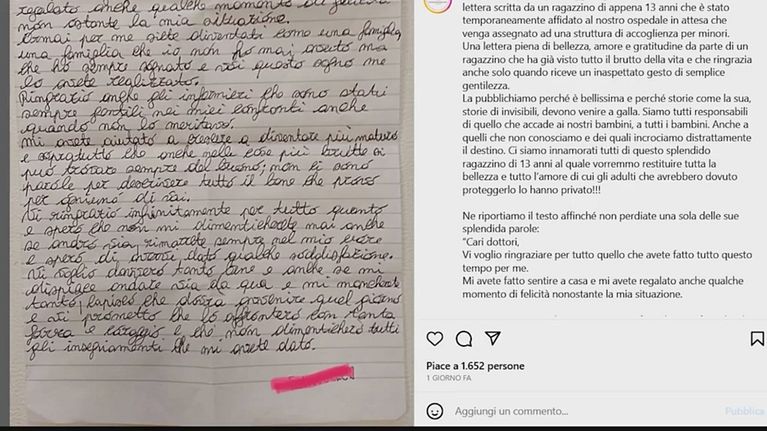 regalato anche qualche momento di felicità
non ostante la mia situazione.
Ormai per me siete diventati come una famiglia,
una famiglia che io non ho mai avuto ma
che ho sempre sognato e voi questo sogno me
lo avete realizzato.
Ringrazio anche gli infermieri che sono stati
sempre gentili nei miei confronti anche
quando non lo meritavo.
Mi avete aiutato a crescere a diventare più maturo
e sopratutto che anche nelle cose più brutte si
può trovare sempre del buono; non ci sono
parole per descrivere tutto il bene che provo
per ogniuno di voi.
Vi ringrazio infinitamente per tutto quanto
e spero che non mi dimenticherete mai anche
se andrò via, rimarrete sempre nel mio cuore
e spero di avervi dato qualche soddisfazione.
Vi voglio davvero tanto bene e anche se mi
dispiace andare via da qua e mi mancherete
tanto, capisco che dovrà avvenire quel giorno
e vi prometto che lo affronterò con tanta
forza e coraggio e che non dimenticherò tutti
gli insegnamenti che mi avete dato.
lettera scritta da un ragazzino di appena 13 anni che è stato
temporaneamente affidato al nostro ospedale in attesa che
venga assegnato ad una struttura di accoglienza per minori.
Una lettera piena di bellezza, amore e gratitudine da parte di un
ragazzino che ha già visto tutto il brutto della vita e che ringrazia
anche solo quando riceve un inaspettato gesto di semplice
gentilezza.
La pubblichiamo perché è bellissima e perché storie come la sua,
storie di invisibili, devono venire a galla. Siamo tutti responsabili
di quello che accade ai nostri bambini, a tutti i bambini. Anche a
quelli che non conosciamo e dei quali incrociamo distrattamente
il destino. Ci siamo innamorati tutti di questo splendido
ragazzino di 13 anni al quale vorremmo restituire tutta la
bellezza e tutto l'amore di cui gli adulti che avrebbero dovuto
proteggerlo lo hanno privato!!!
Ne riportiamo il testo affinché non perdiate una sola delle sue
splendida parole:
"Cari dottori,
Vi voglio ringraziare per tutto quello che avete fatto tutto questo
tempo per me.
Mi avete fatto sentire a casa e mi avete regalato anche qualche
momento di felicità nonostante la mia situazione.
Piace a 1.652 persone
1 GIORNO FA
Aggiungi un commento...
Pubblica